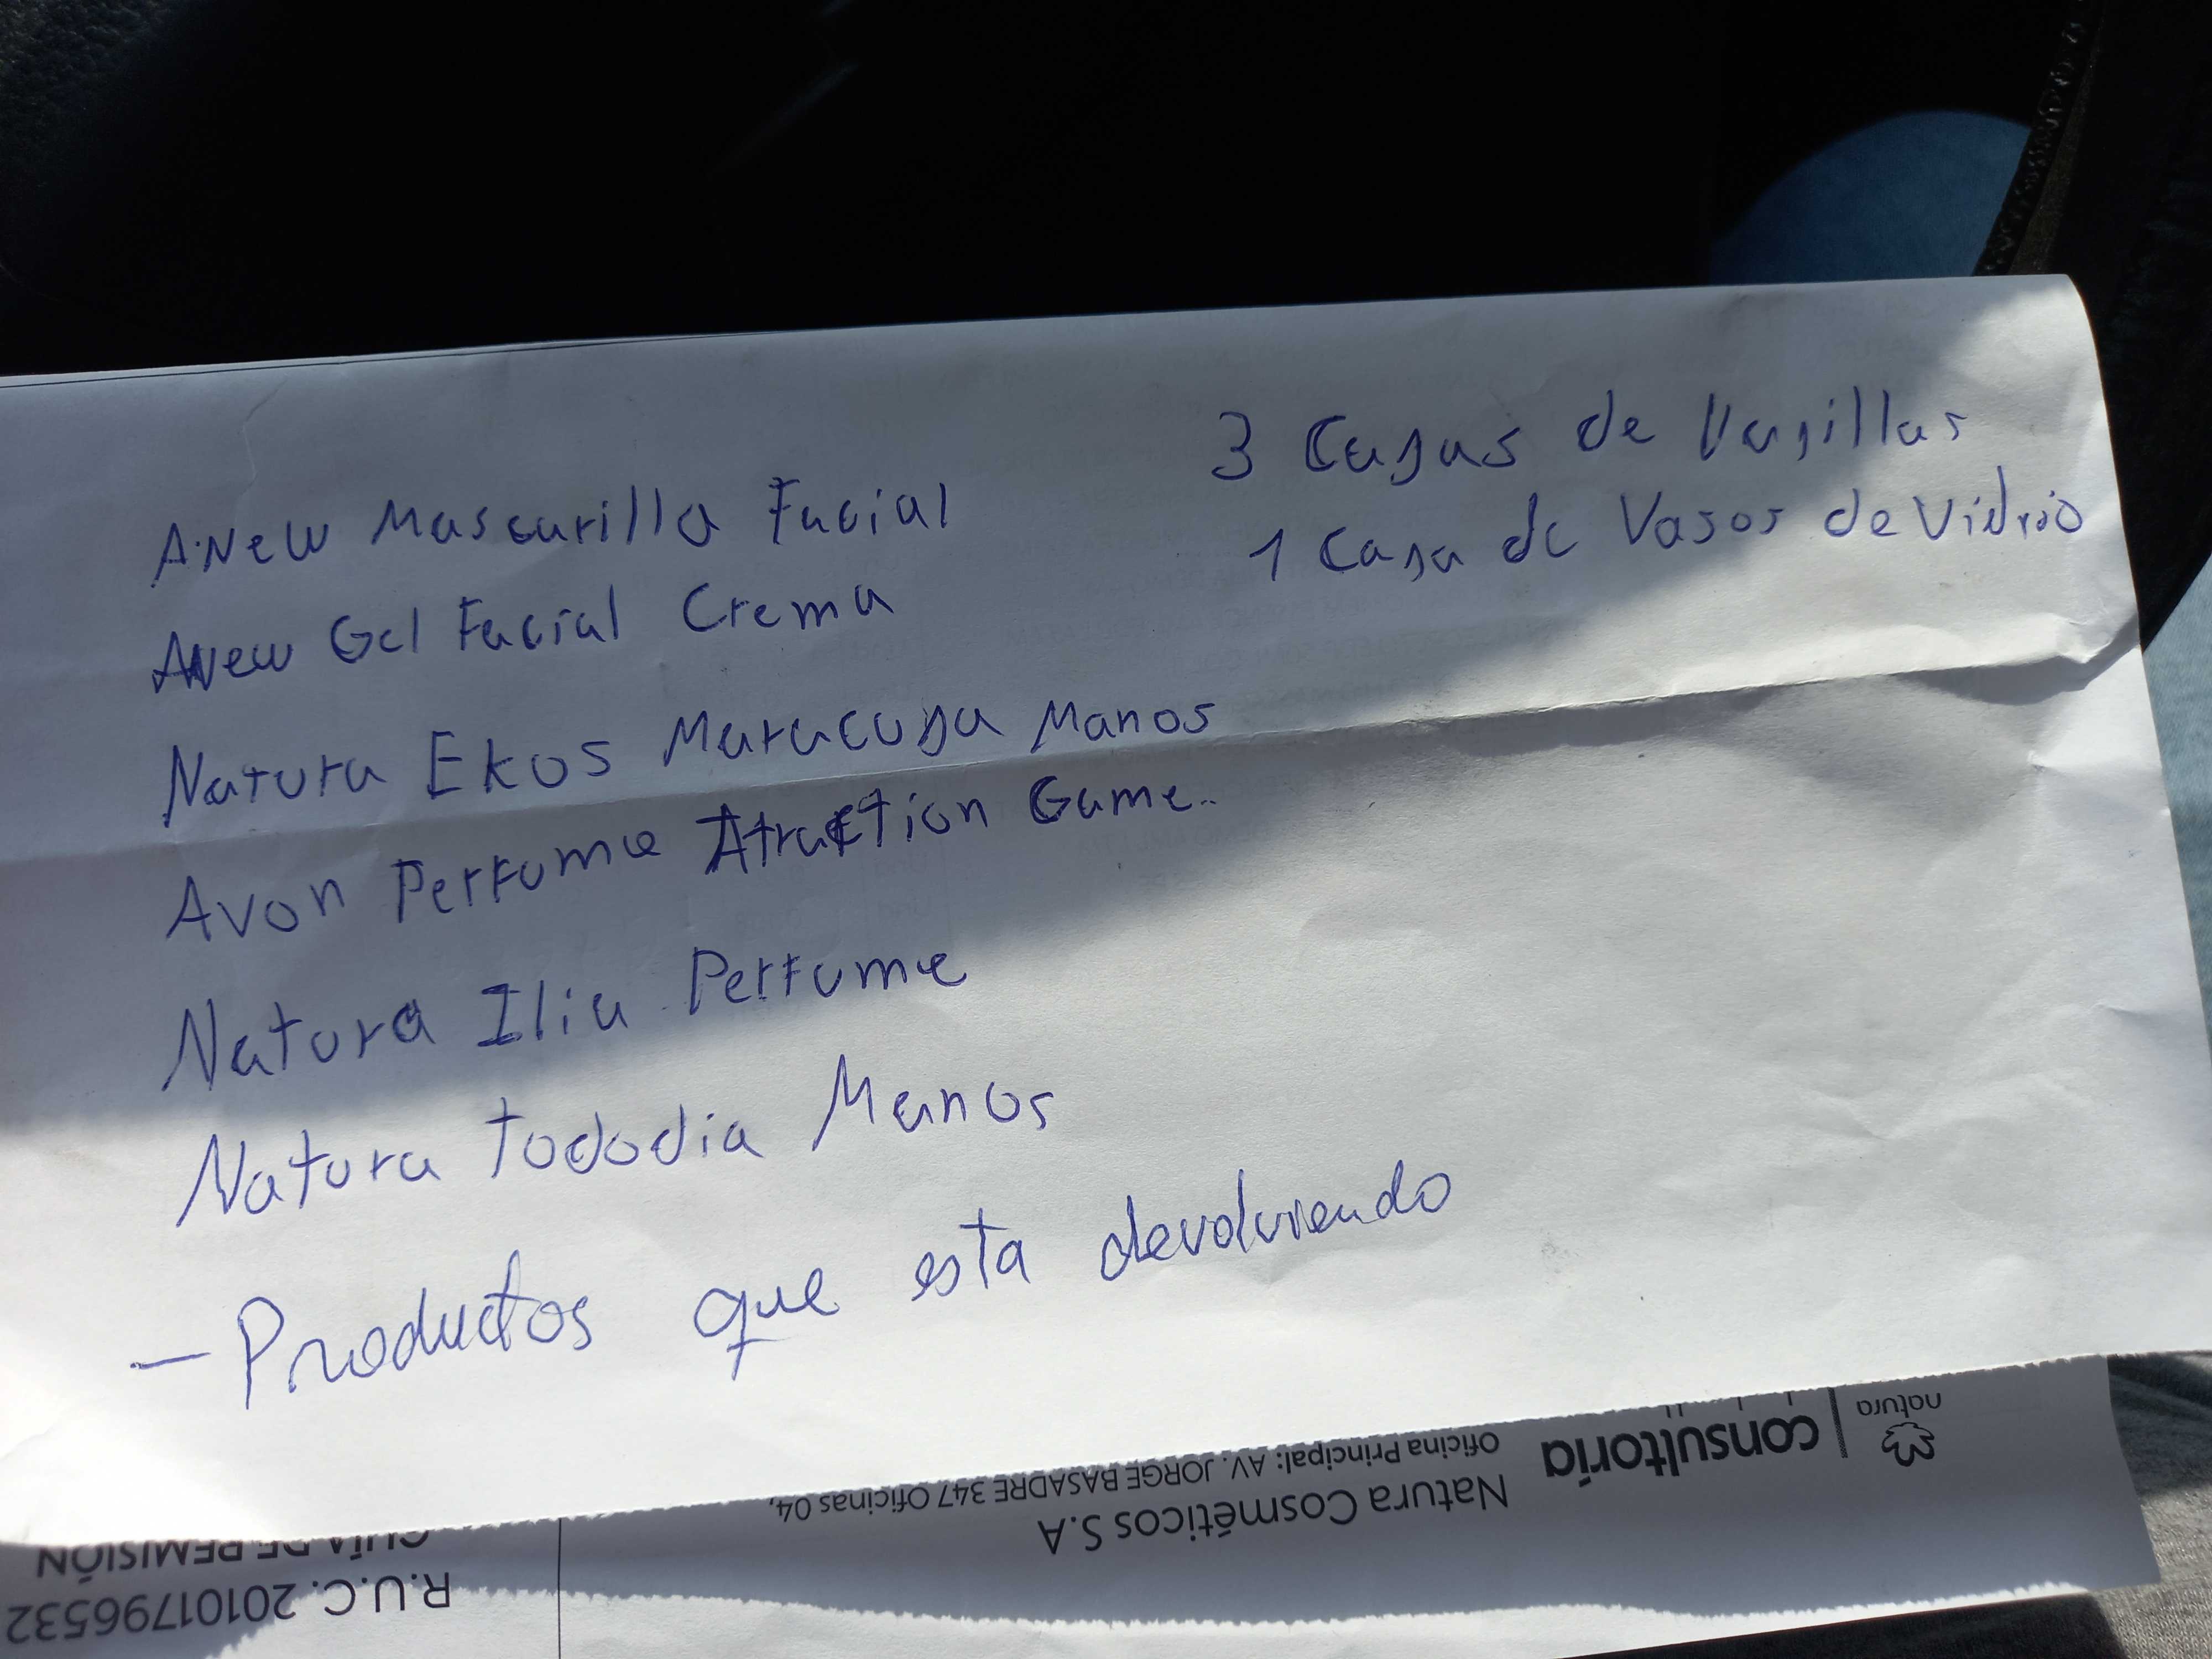 3 Cajas de Vajillas
1 Caja de Vasos de Vidrio
ANew Mascarilla Facial
ANew Gel Facial Crema
Natura Ekos Maracuja Manos
Avon Perfume Atraction Game..
Natura Ilia Perfume
Natura tododia Manos
- Productos que esta devolviendo
natura
consultoría
Natura Cosméticos S.A
Oficina Principal: AV. JORGE BASADRE 347 Oficinas 04,
R.U.C. 20101796532
GUÍA DE REMISIÓN